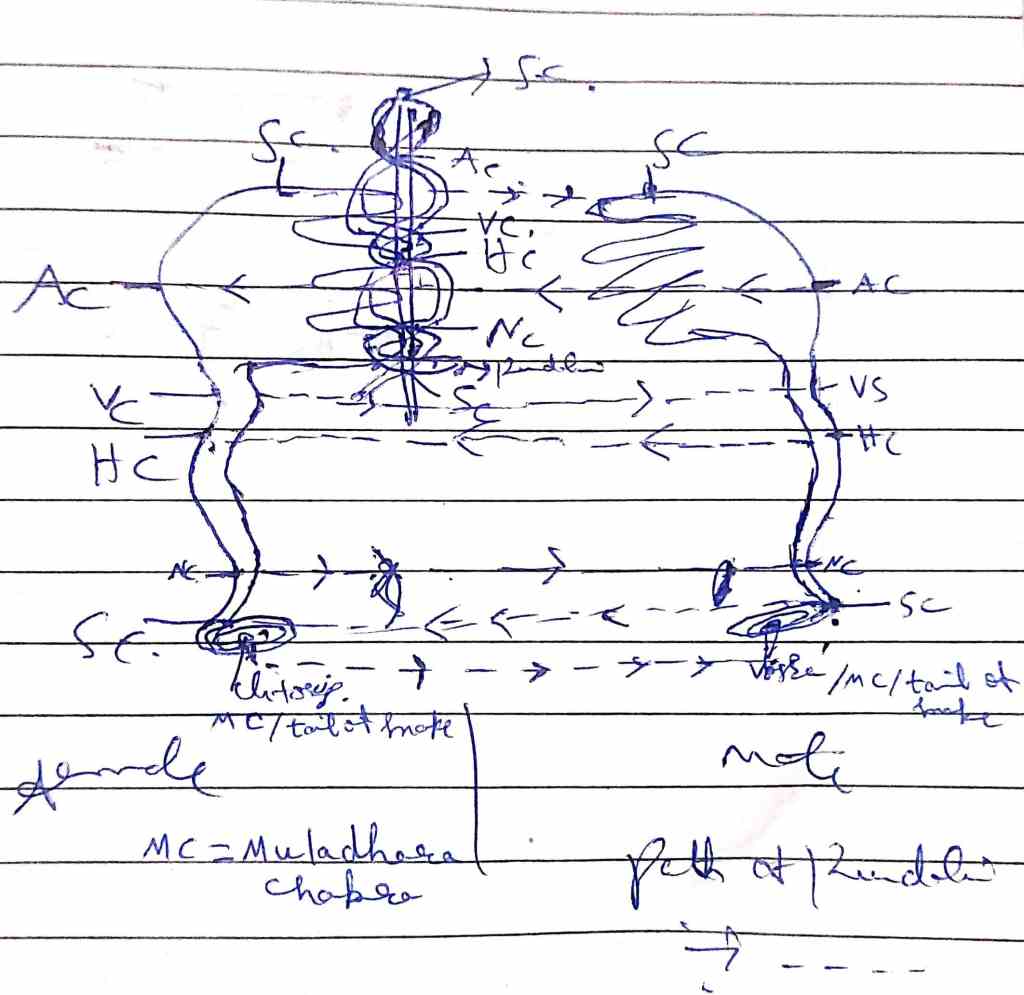 Sc.
Sc.
Ac
SC
VC.
HC
Ac
AC
NC
Kundalini
Vc
Sc
VS
HC
HC
NC
NC
Sc.
SC
MC/tail of snake
/MC/tail of
snake
female
male
MC = Muladhara
chakra
Path of Kundalini